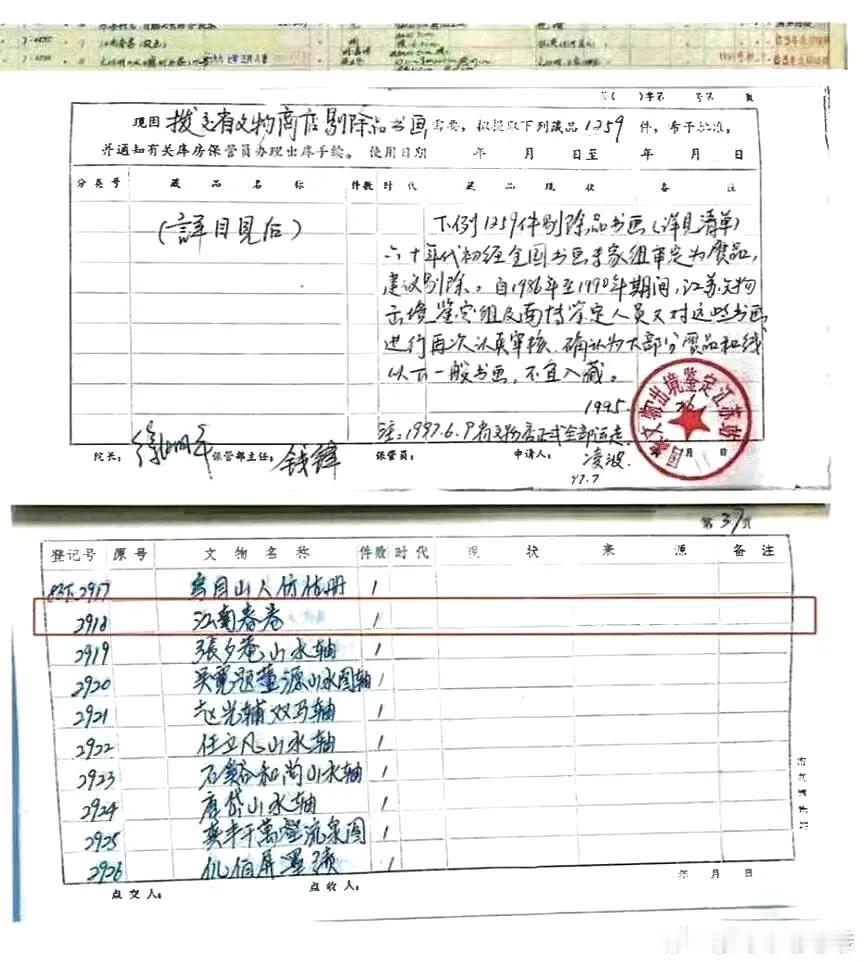 第( )字第 号第 页
现因 拨交省文物商店剔除品书画 需要，拟提取下列藏品1259件，希予批准，
并通知有关库房保管员办理出库手续。 使用日期 年 月 日至 年 月 日
分类号 藏品名称 件数 时代 藏品现状 备注
(詳目見后)
下例1259件剔除品书画(详见清单)
六十年代初经全国书画专家组审定为赝品，
建议剔除。自1986年至1990年期间，江苏文物
出境鉴定组及南博鉴定人员又对这些书画
进行再次认真审核，确认为大部分赝品和线
以下一般书画，不宜入藏。
1995.
注：1997.6.9省文物店正式全部运走
院长： 徐湖平 保管部主任： 钱锋 保管员： 申请人： 凌波 月 日
97.7
国家文物出境鉴定江苏站
第37页
登记号 原号 文物名称 件数 时代 现状 来源 备注
2917 乌目山人仿信册 1
2918 江南春卷 1
2919 張夕庵山水轴 1
2920 吴寛题董源山水图轴 1
2921 赵光辅双马轴 1
2922 任立凡山水轴 1
2923 石谿和尚山水轴 1
2924 唐岱山水轴 1
2925 龚半千萬壑流泉图 1
2926 仉伯屏墨蹟 1
年 月 日
点交人： 点收人：